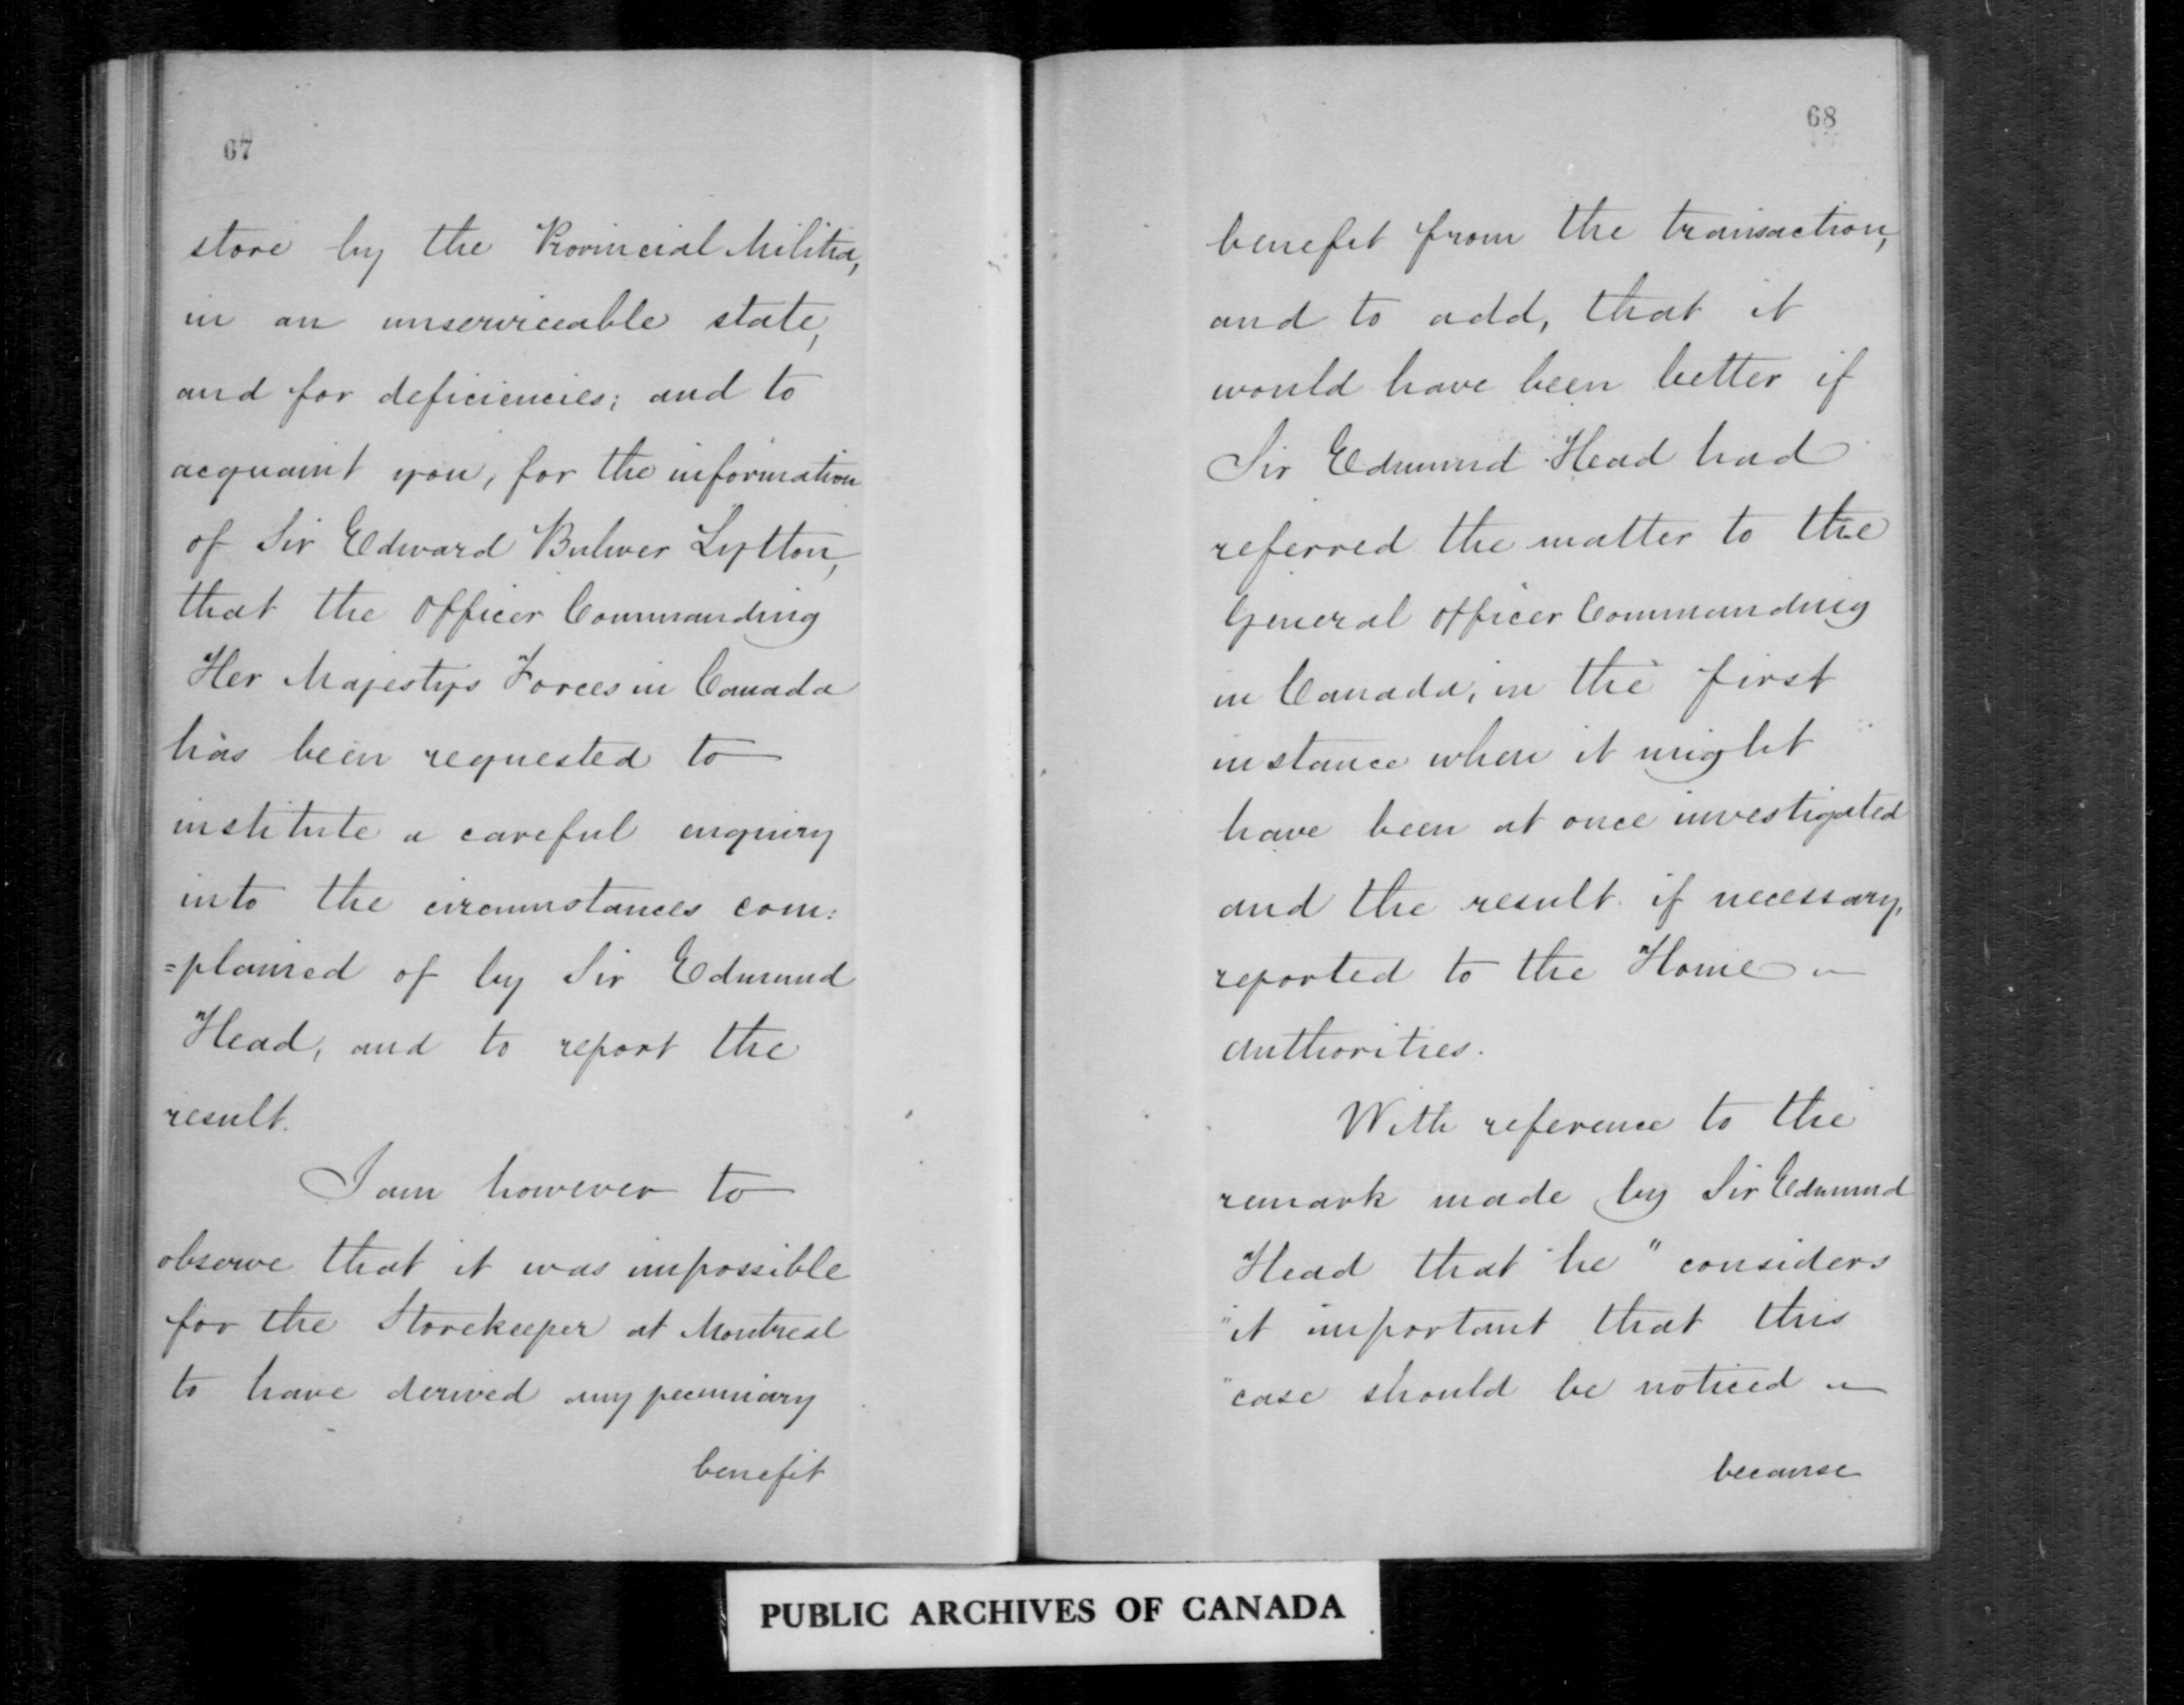 67
store by the Provincial Militia,
in an unserviceable state,
and for deficiencies; and to
acquaint you, for the information
of Sir Edward Bulwer Lytton,
that the Officer Commanding
Her Majestys Forces in Canada
has been requested to
institute a careful enquiry
into the circumstances com:
=plained of by Sir Edmund
Head, and to report the
result.
I am however to
observe that it was impossible
for the Storekeeper at Montreal
to have derived any pecuniary
benefit
68
benefit from the transaction,
and to add, that it
would have been better if
Sir Edmund Head had
referred the matter to the
General Officer Commanding
in Canada, in the first
instance when it might
have been at once investigated
and the result if necessary,
reported to the Home
authorities.
With reference to the
remark made by Sir Edmund
Head that he "considers
"it important that this
"case should be noticed
because
PUBLIC ARCHIVES OF CANADA